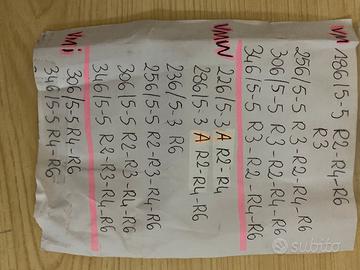 VM
186/5-5 R2-R4-R6
R3
256/5-5 R3-R2-R4-R6
306/5-5 R3-R2-R4-R6
346/5-5 R3-R2-R4-R6
VMW
226/5-3 A R2-R4
286/5-3 A R2-R4-R6
236/5-3 R6
256/5-5 R2-R3-R4-R6
306/5-5 R2-R3-R4-R6
346/5-5 R2-R3-R4-R6
VMi
306/5-5 R4-R6
346/5-5 R4-R6
subito